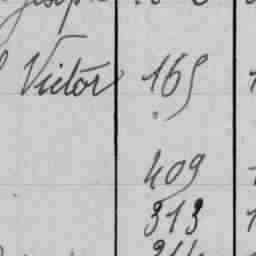 Victor 165
409
313